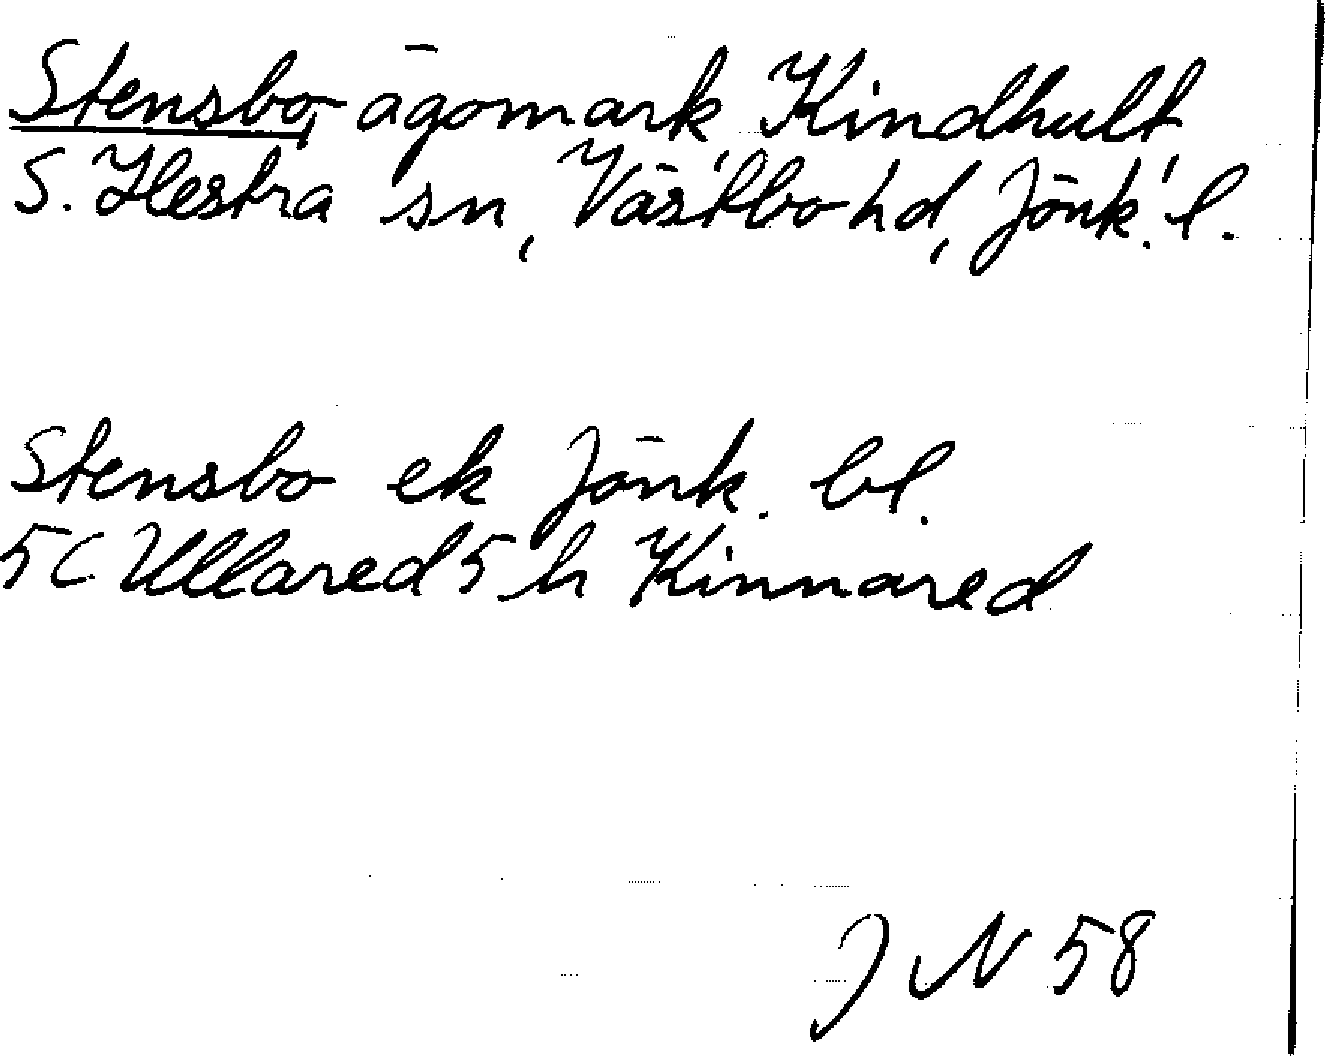 Stensbo, ägomark, Kindhult
S. Hestra sn, Västbo hd, Jönk. l.
Stensbo ek Jönk. bl.
5C Ullared 5 h Kinnared
J N 58